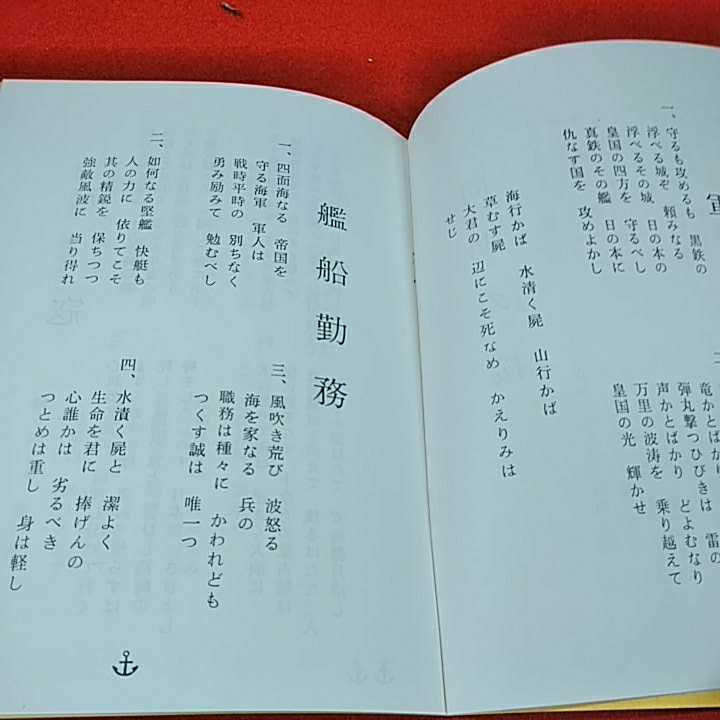 軍
一、守るも攻めるも 黒鉄の
浮べる城ぞ 頼みなる
浮べるその城 日の本の
皇国の四方を 守るべし
真鉄のその艦 日の本に
仇なす国を 攻めよかし
弾丸撃つひびきは 雷の
声かとばかり どよむなり
万里の波涛を 乗り越えて
皇国の光 輝かせ
海行かば 水漬く屍 山行かば
草むす屍
大君の 辺にこそ死なめ かえりみは
せじ
艦船勤務
一、四面海なる 帝国を
守る海軍 軍人は
戦時平時の 別ちなく
勇み励みて 勉むべし
二、如何なる堅艦 快艇も
人の力に 依りてこそ
其の精鋭を 保ちつつ
強敵風波に 当り得れ
三、風吹き荒び 波怒る
海を家なる 兵の
職務は種々に かわれども
つくす誠は 唯一つ
四、水漬く屍と 潔よく
生命を君に 捧げんの
心誰かは 劣るべき
つとめは重し 身は軽し